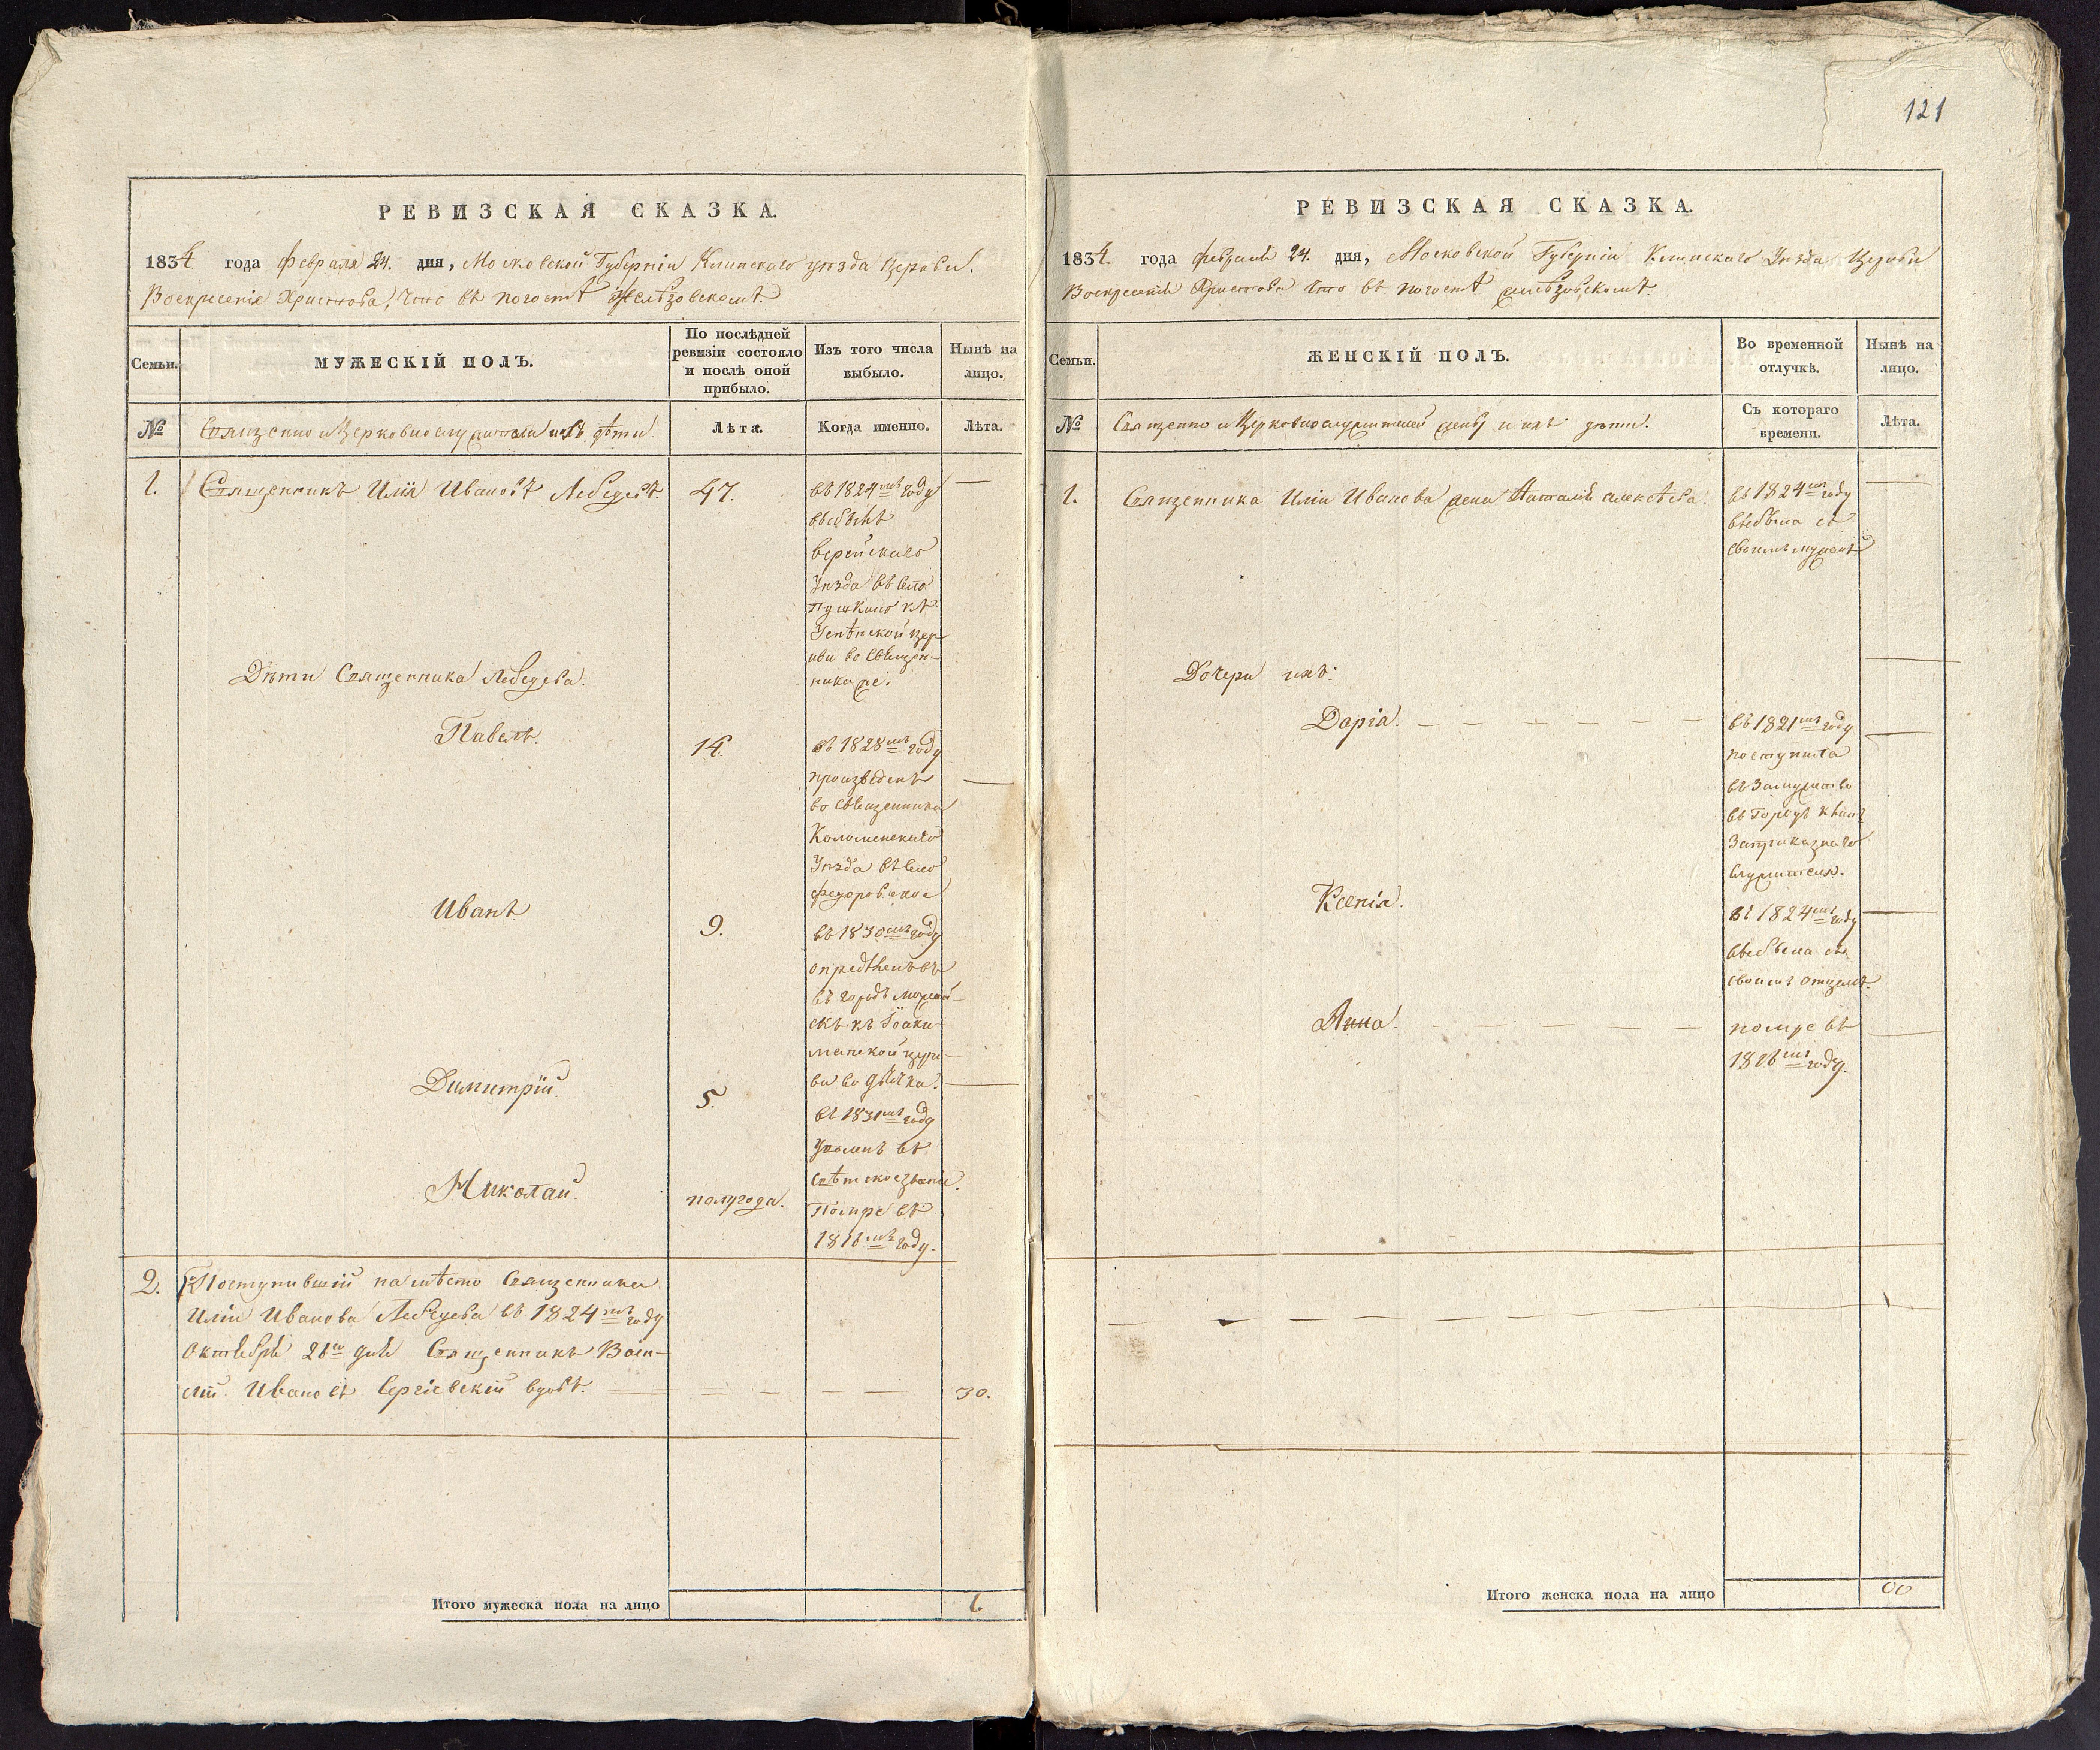 РЕВИЗСКАЯ СКАЗКА.
1834. года февраля 24. дня, Московской Губерніи Клинскаго уѣзда Церкви.
Воскресенія Христова, что въ погостѣ
Семьи.
МУЖЕСКІЙ ПОЛЪ.
По послѣдней
ревизіи состояло
и послѣ оной
прибыло.
Изъ того числа
выбыло.
Нынѣ на
лицо.
№
Священно и Церковнослужители и ихъ дѣти.
Лѣта.
Когда именно.
Лѣта.
1.
Священникъ Илія Ивановъ Лебедевъ.
47.
въ 1824мъ году
выбылъ
верейскаго
Уѣзда въ село
Пушкино къ
Успѣнской цер-
кви во Священ-
ника же.
Дѣти Священника Лебедева.
Павелъ.
14.
въ 1828мъ году
произведенъ
во священника
Коломенскаго
Уѣзда въ село
федоровское
Иванъ
9.
въ 1830мъ году
опредѣленъ
въ городъ можай-
скъ къ Іоаки-
манской церк-
ви во дьячка.
Димитрій.
5.
въ 1831мъ году
Уволенъ въ
свѣтское званіе.
Николай.
полугода.
Помре въ
1816мъ году.
2.
Поступившій на мѣсто Священника
Иліи Иванова Лебедева въ 1824мъ году
Октября 26го дня Священникъ Васи-
лій Ивановъ Сергіевскій вдовъ.
30.
Итого мужеска пола на лицо
1.
121
РЕВИЗСКАЯ СКАЗКА.
1834. года февраля 24. дня, Московской Губерніи Клинскаго Уѣзда Церкви
Воскресенія Христова что въ погостѣ
Семьи.
ЖЕНСКІЙ ПОЛЪ.
Во временной
отлучкѣ.
Нынѣ на
лицо.
№
Священно и Церковнослужителей жены и ихъ дѣти.
Съ котораго
времени.
Лѣта.
1.
Священника Иліи Иванова жена Наталія Алексѣева.
въ 1824мъ году
выбыла съ
своимъ мужемъ
Дочери ихъ:
Дарія.
въ 1821мъ году
поступила
въ Замужство
въ Городъ Клинъ
За приказнаго
служителя.
Ксенія.
въ 1824мъ году
выбыла съ
своимъ отцемъ.
Анна.
помре въ
1816мъ году.
Итого женска пола на лицо
00